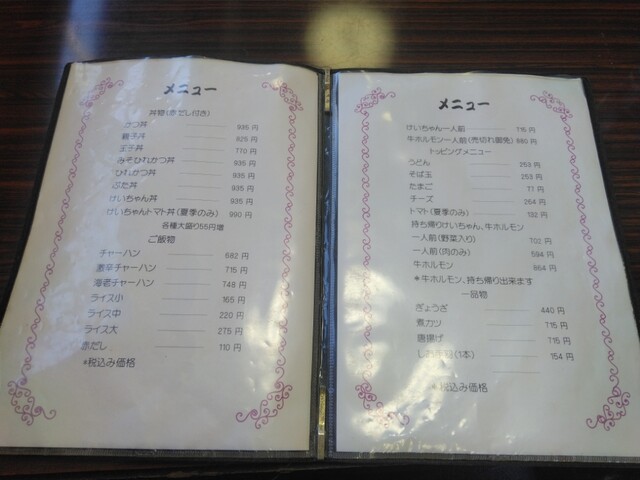 メニュー
丼物(赤だし付き)
かつ丼 935 円
親子丼 825 円
玉子丼 770 円
みそひれかつ丼 935 円
ひれかつ丼 935 円
ぶた丼 935 円
けいちゃん丼 935 円
けいちゃんトマト丼(夏季のみ) 990 円
各種大盛り55円増
ご飯物
チャーハン 682 円
激辛チャーハン 715 円
海老チャーハン 748 円
ライス小 165 円
ライス中 220 円
ライス大 275 円
赤だし 110 円
*税込み価格
メニュー
けいちゃん一人前 715 円
牛ホルモン一人前(売切れ御免) 880 円
トッピングメニュー
うどん 253 円
そば玉 253 円
たまご 71 円
チーズ 264 円
トマト(夏季のみ) 132 円
持ち帰りけいちゃん、牛ホルモン
一人前(野菜入り) 702 円
一人前(肉のみ) 594 円
牛ホルモン 864 円
*牛ホルモン、持ち帰り出来ます
一品物
ぎょうざ 440 円
煮カツ 715 円
唐揚げ 715 円
(1本) 154 円
*税込み価格